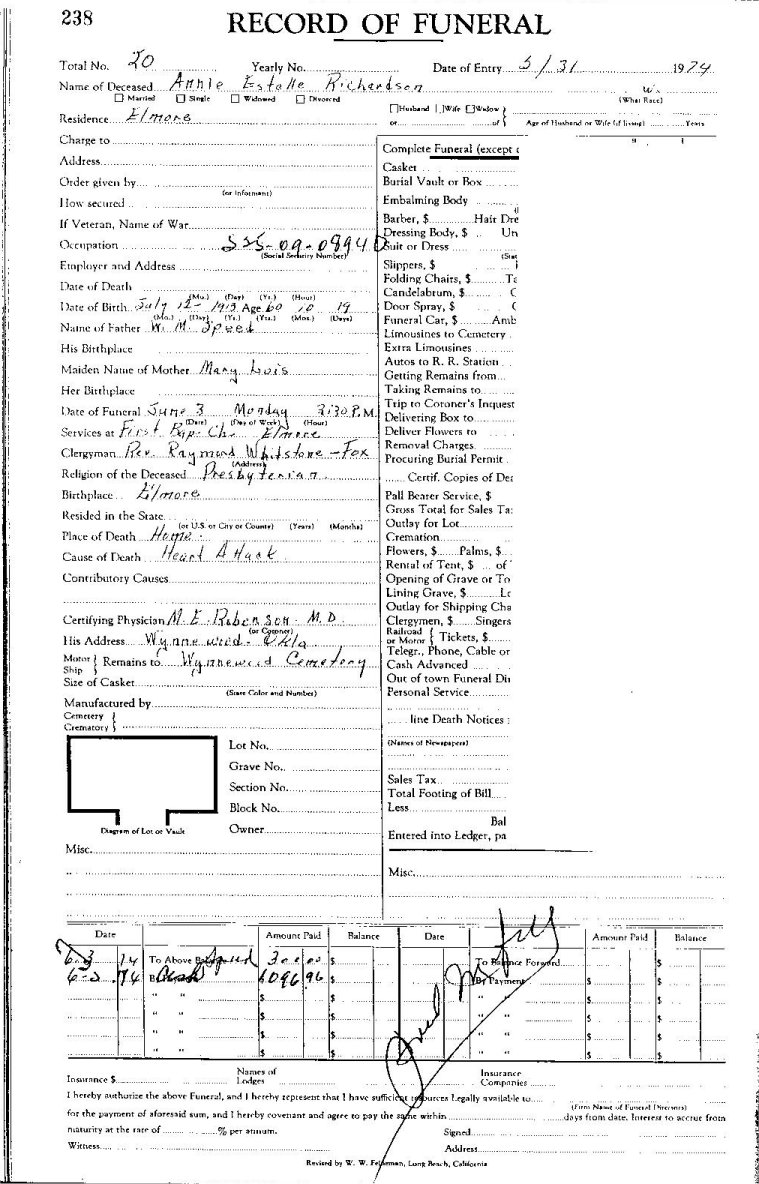 238
RECORD OF FUNERAL
Total No. 20 Yearly No. Date of Entry 5/31 1974
Name of Deceased Annie Estelle Richardson W.
Married Single Widowed Divorced (What Race)
Husband Wife Widow
or of Age of Husband or Wife (if living) Years
Residence Elmore
Charge to
Address
Order given by
(or Informant)
How secured
If Veteran, Name of War
Occupation
(Social Security Number)
Employer and Address
Date of Death
(Mo.) (Day) (Yr.) (Hour)
Date of Birth July 12 - 1913 Age 60 10 19
(Mo.) (Day) (Yr.) (Yrs.) (Mos.) (Days)
Name of Father W. M. Speed
His Birthplace
Maiden Name of Mother Mary Lois
Her Birthplace
Date of Funeral June 3 Monday 2:30 P.M.
(Date) (Day of Week) (Hour)
Services at First Bap. Ch. Elmore
Clergyman Rev. Raymond Whitstone - Fox
(Address)
Religion of the Deceased Presbyterian
Birthplace Elmore
Resided in the State
(or U.S. or City or County) (Years) (Months)
Place of Death Home
Cause of Death Heart Attack
Contributory Causes
Certifying Physician M. E. Roberson M.D.
(or Coroner)
His Address Wynnewood - Okla
Motor Ship Remains to Wynnewood Cemetery
Size of Casket
(State Color and Number)
Manufactured by
Cemetery
Crematory
Lot No.
Grave No.
Section No.
Block No.
Owner
Diagram of Lot or Vault
Misc.
Complete Funeral (except
Casket
Burial Vault or Box
Embalming Body
Barber, $ Hair Dre
Dressing Body, $ Un
Suit or Dress
(Stat
Slippers, $
Folding Chairs, $
Candelabrum, $
Door Spray, $
Funeral Car, $ Amb
Limousines to Cemetery
Extra Limousines
Autos to R. R. Station
Getting Remains from
Taking Remains to
Trip to Coroner's Inquest
Delivering Box to
Deliver Flowers to
Removal Charges
Procuring Burial Permit
Certif. Copies of De
Pall Bearer Service, $
Gross Total for Sales Ta
Outlay for Lot
Cremation
Flowers, $ Palms, $
Rental of Tent, $ of
Opening of Grave or To
Lining Grave, $
Outlay for Shipping Cha
Clergymen, $ Singers
Railroad or Motor Tickets, $
Telegr., Phone, Cable or
Cash Advanced
Out of town Funeral Dir
Personal Service
line Death Notices
(Names of Newspapers)
Sales Tax
Total Footing of Bill
Less
Bal
Entered into Ledger, pa
Misc.
Date Amount Paid Balance Date Amount Paid Balance
6-3 74 To Above 300 00 $ To Balance Forward $
6-3 74 By Cash 1096 96 $ By Payment $ $
" " $ $ " " $ $
" " $ $ " " $ $
" " $ $ " " $ $
" " $ $ " " $ $
Insurance $ Names of Lodges Insurance Companies
I hereby authorize the above Funeral, and I hereby represent that I have sufficient resources Legally available to
(Firm Name of Funeral Directors)
for the payment of aforesaid sum, and I hereby covenant and agree to pay the same within days from date. Interest to accrue from
maturity at the rate of % per annum. Signed
Witness Address
Revised by W. W. Fellerman, Long Beach, California